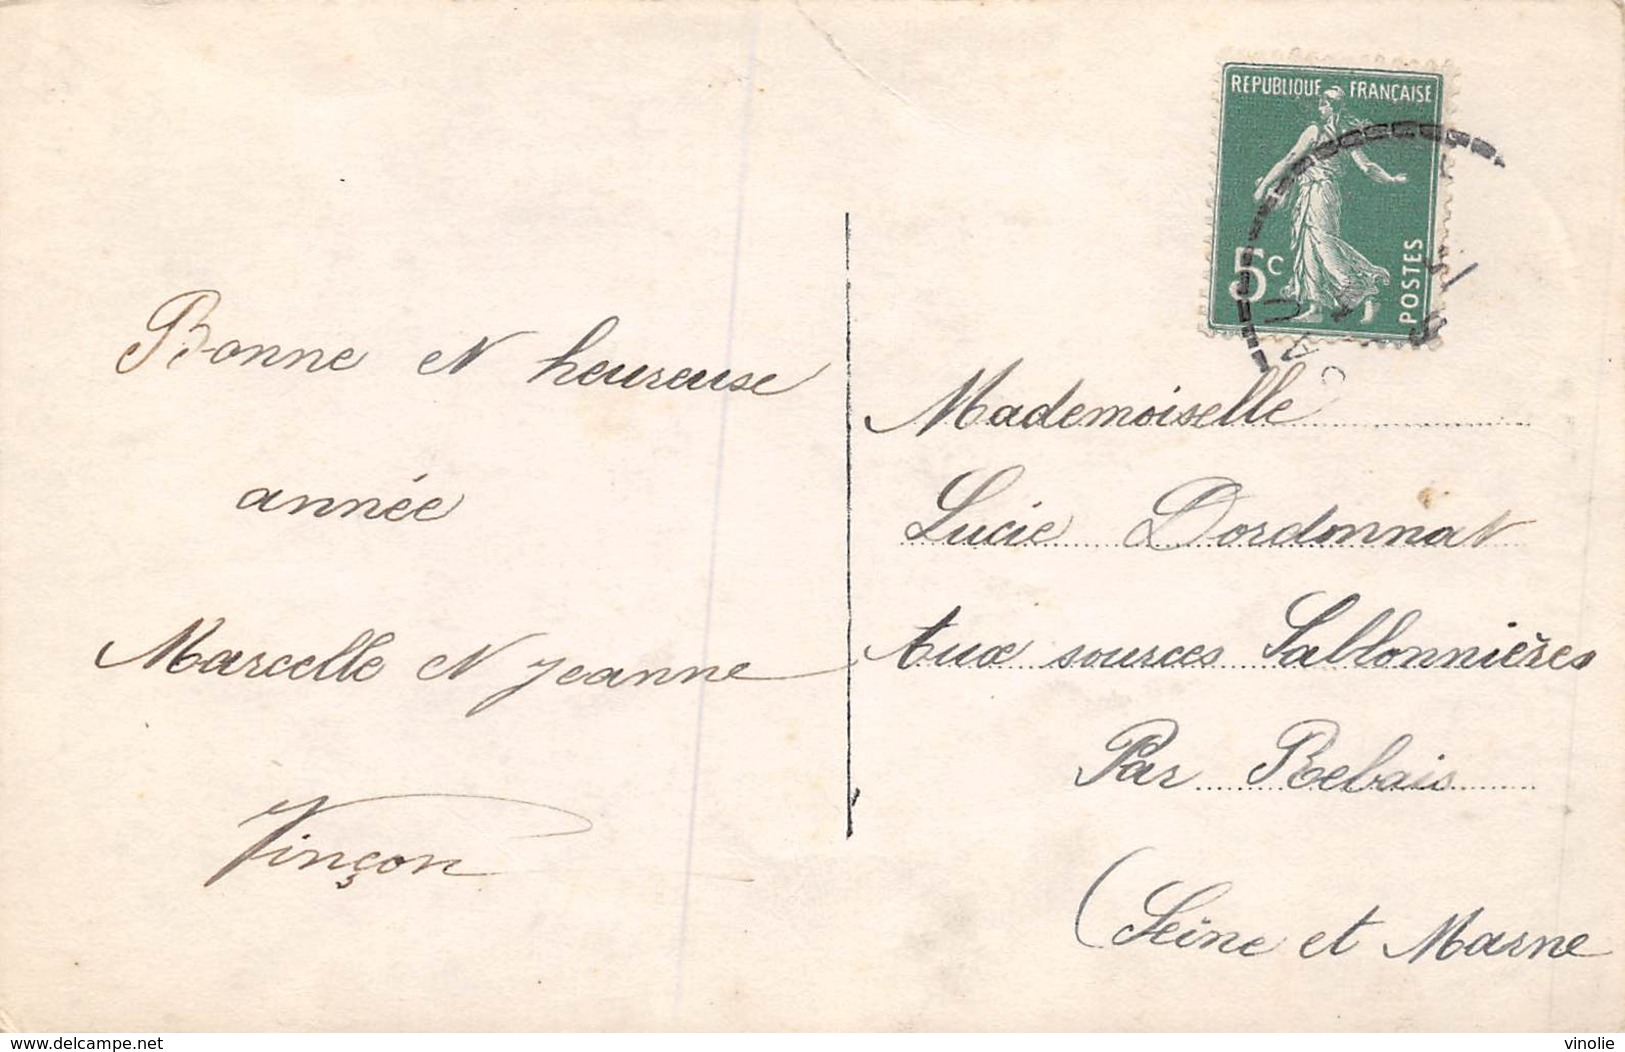 Bonne et heureuse
année
Marcelle et Jeanne
Vinçon
REPUBLIQUE FRANÇAISE
5c
POSTES
Mademoiselle
Lucie Dordonnat
Aux sources Sablonnières
Par Rebais
(Seine et Marne
www.delcampe.net
vinolie